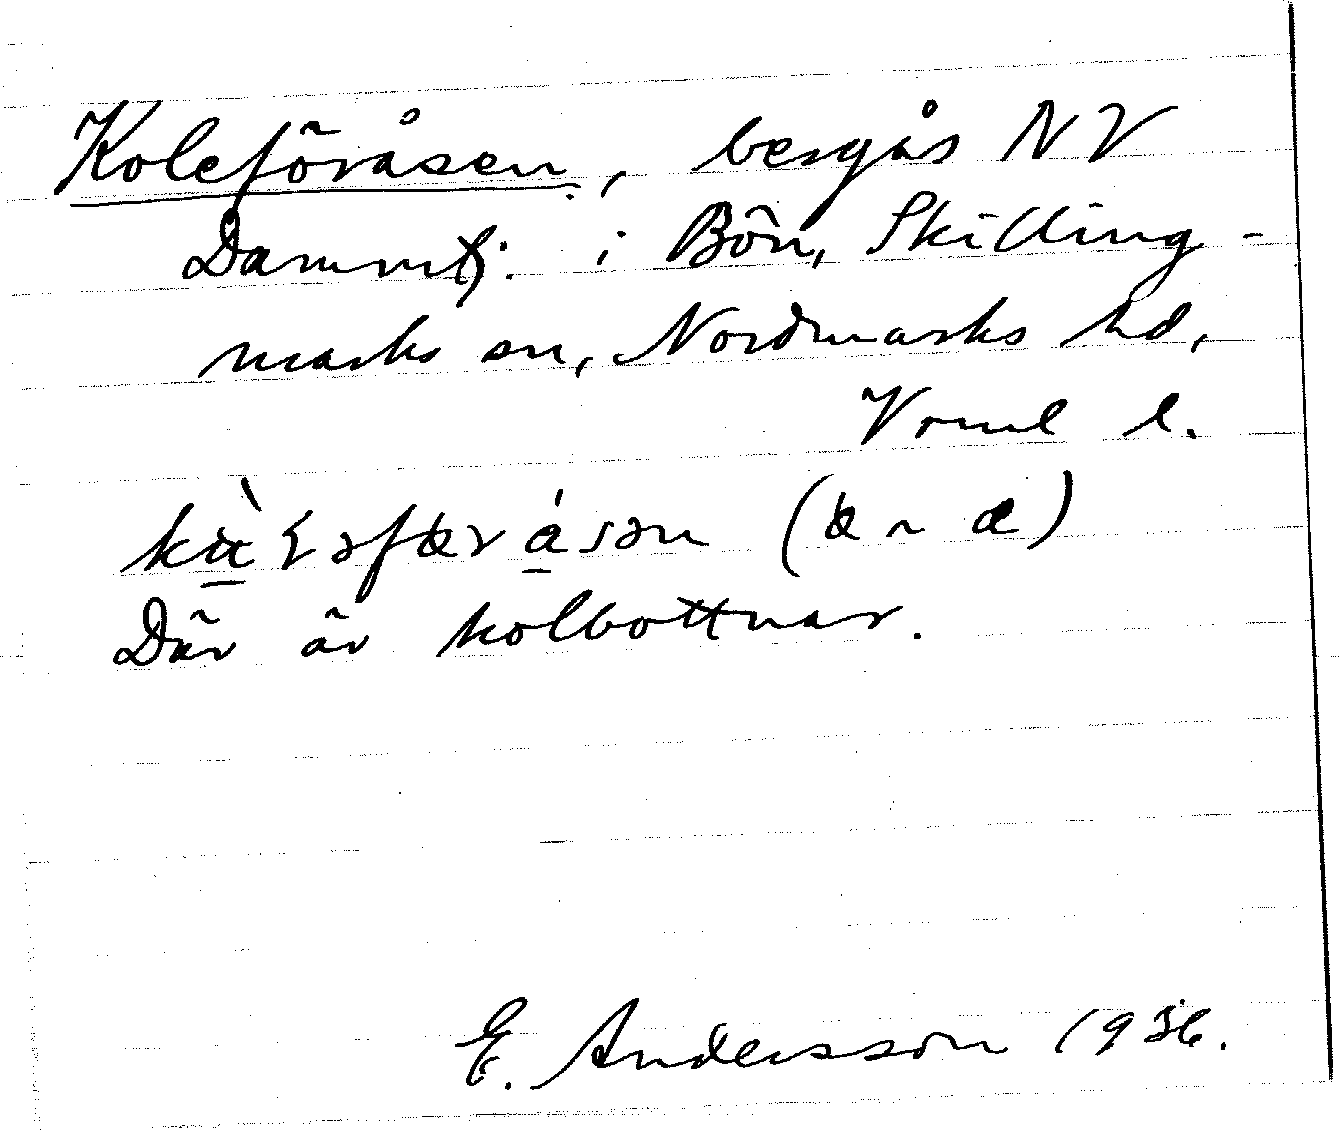 Koleföråsen, bergås NV
Dammtj. i Bön, Skilling-
marks sn, Nordmarks hd,
Vrml l.
Där är kolbottnar.
E. Andersson 1936.